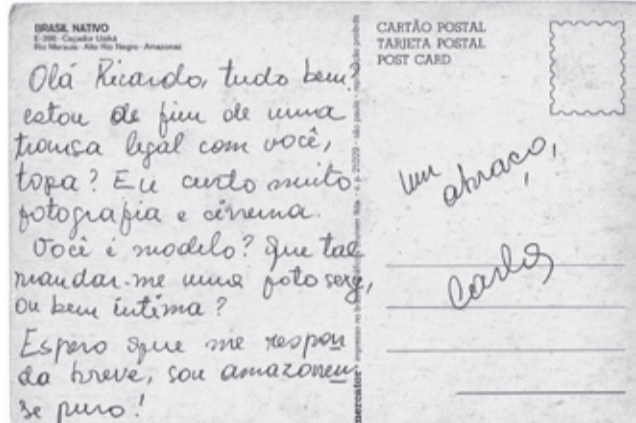 BRASIL NATIVO
Rio Marauiá - Alto Rio Negro - Amazonas
Olá Ricardo, tudo bem?
estou de fim de uma
transa legal com você,
topa? Eu curto muito
fotografia e cinema.
Você é modelo? que tal
mandar-me uma foto sexy,
ou bem íntima?
Espero que me respon
da breve, sou amazonen
se puro!
CARTÃO POSTAL
TARJETA POSTAL
POST CARD
um abraço,
Carlos
mercator